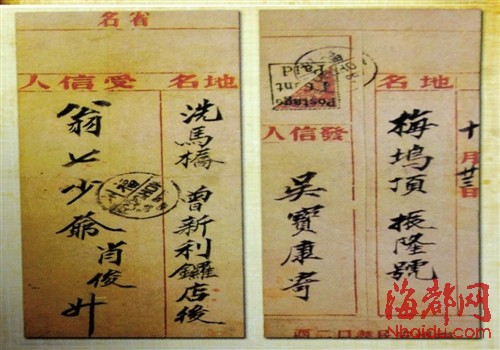 省名
地名
受信人
洗馬橋 曾新利鑼店後
翁七少爺肖俊廾
十月廿三日
地名
發信人
梅塢頂 振隆號
吳寶康寄
Postage
1 Cent
Paid
海都网
Nhaidu.com